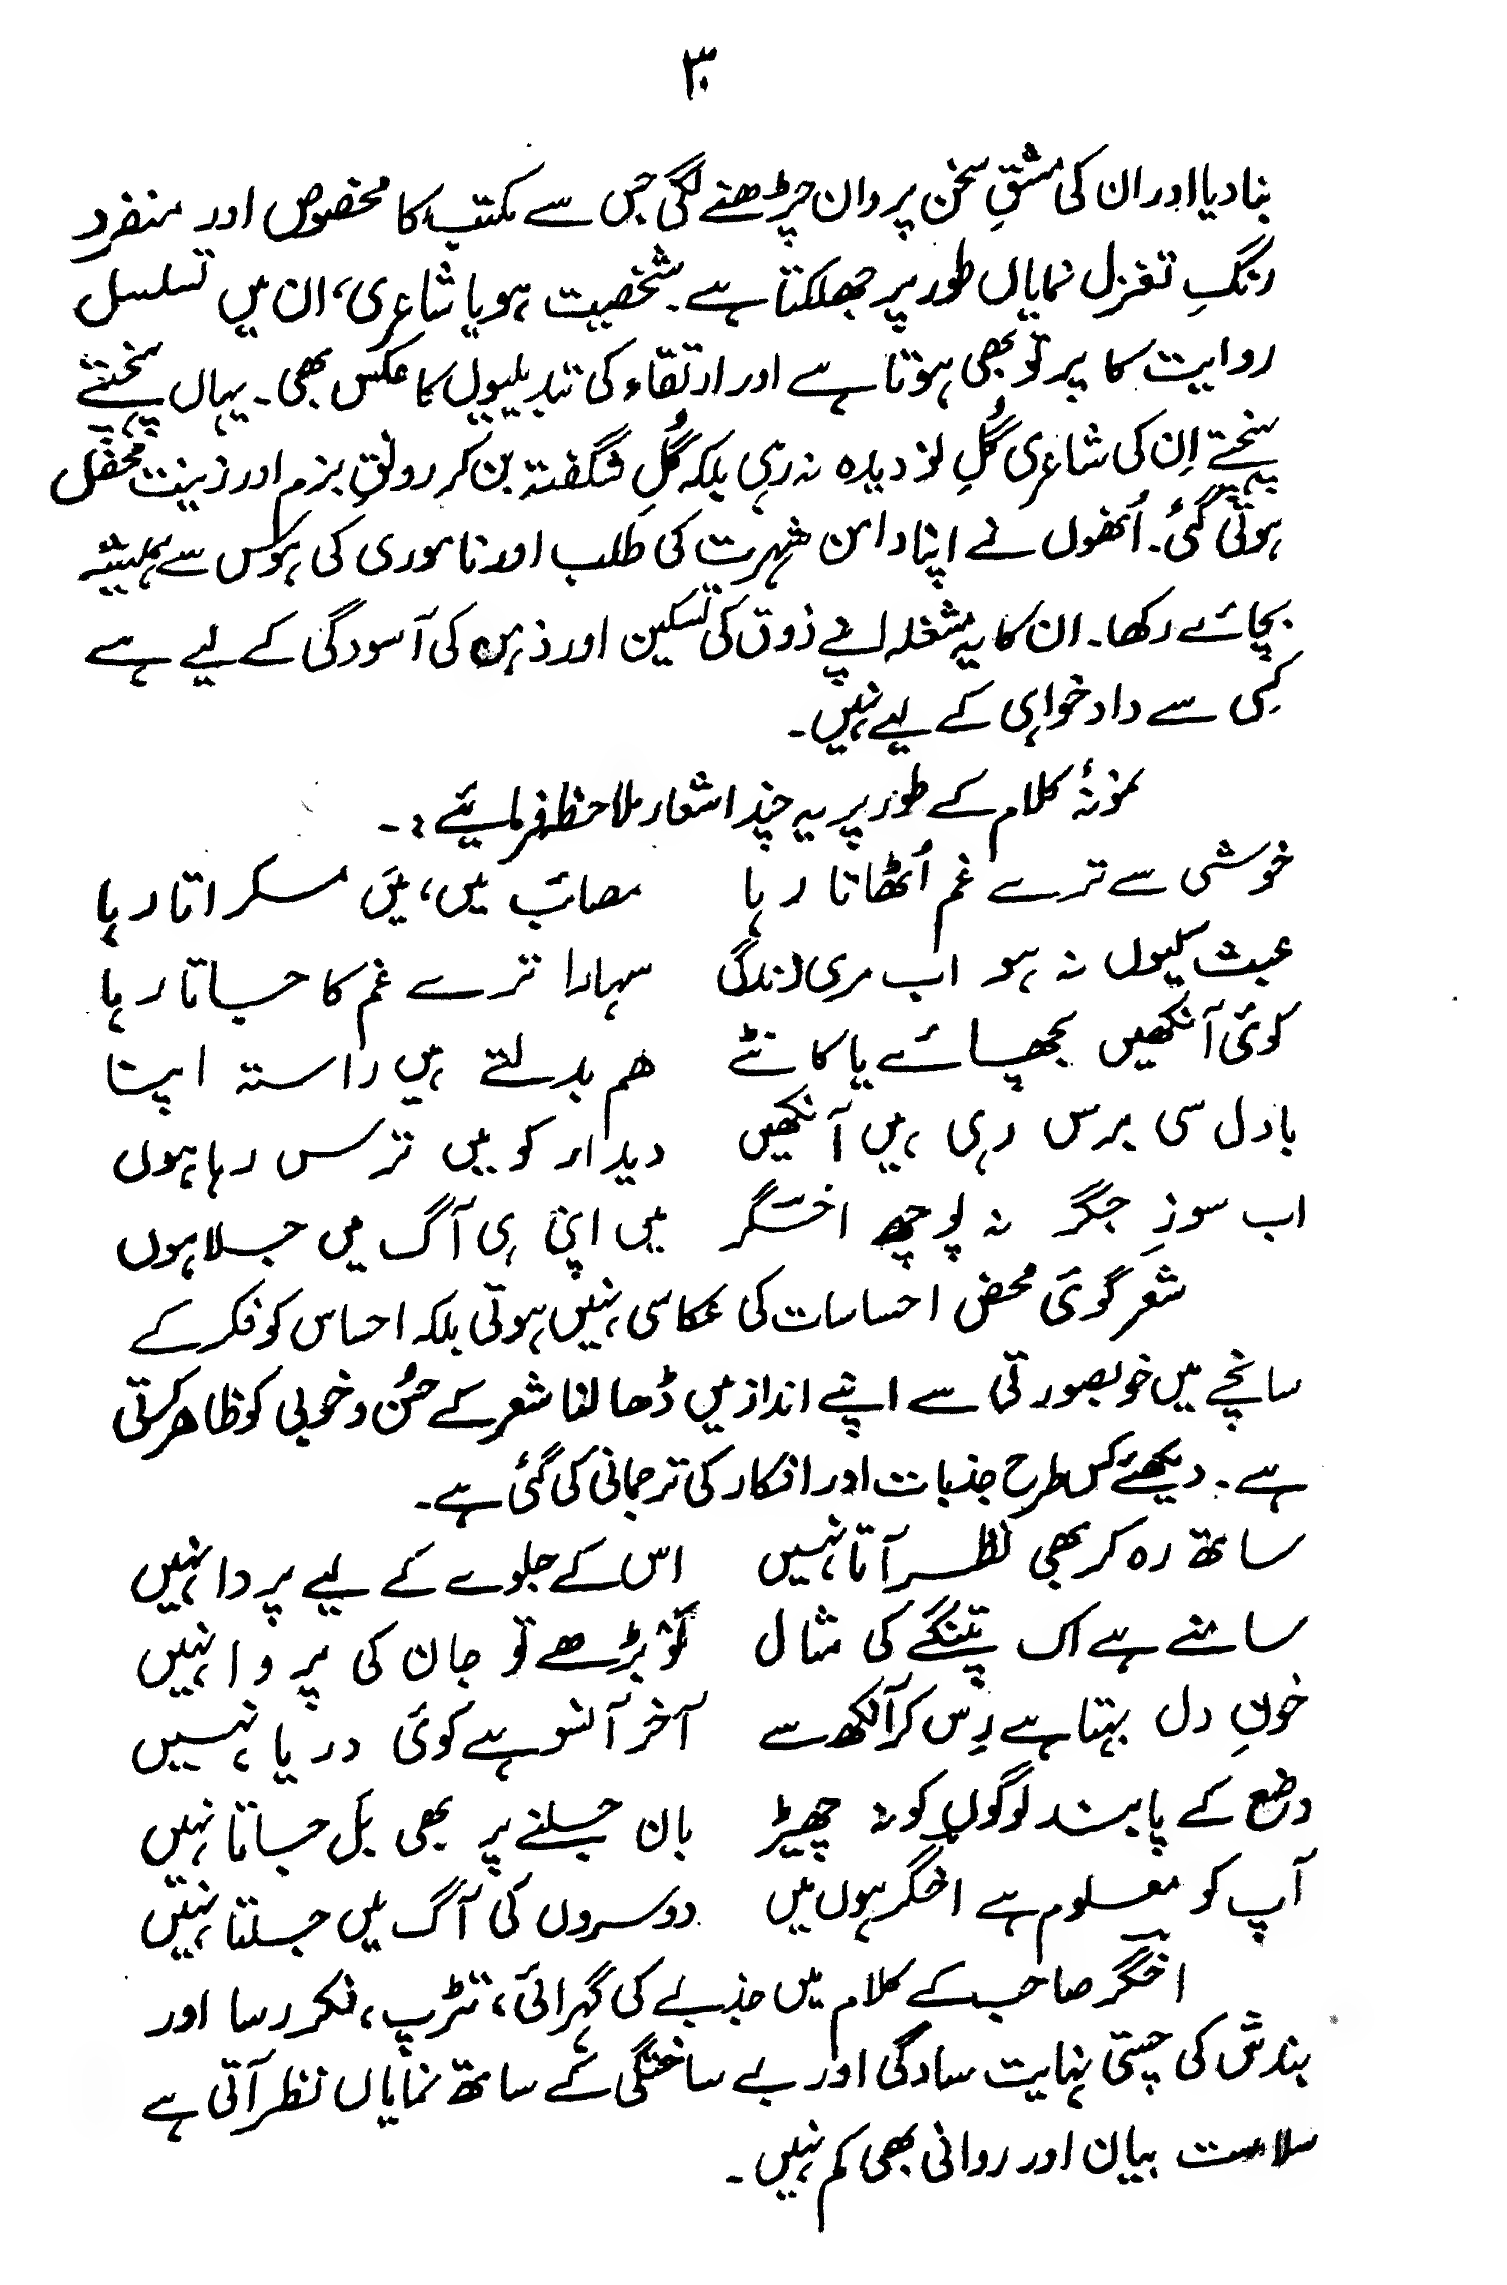 ۳۰
بنا دیا اور ان کی مشقِ سخن پروان چڑھنے لگی جس سے مکتب کا مخصوص اور منفرد
رنگِ تغزل نمایاں طور پر جھلکتا ہے۔ شخصیت ہو یا شاعری، ان میں تسلسل
روایت کا پرتو بھی ہوتا ہے اور ارتقاء کی تبدیلیوں کا عکس بھی۔ یہاں پہنچتے
پہنچتے اِن کی شاعری گُلِ نو دیدہ نہ رہی بلکہ گُلِ شگفتہ بن کر رونقِ بزم اور زینت محفل
ہوتی گئی۔ اُنھوں نے اپنا دامن شہرت کی طلب اور ناموری کی ہوس سے ہمیشہ
بچائے رکھا۔ ان کا یہ مشغلہ اپنے ذوق کی تسکین اور ذہن کی آسودگی کے لیے ہے
کسِی سے داد خواہی کے لیے نہیں۔
نمونۂ کلام کے طور پر یہ چند اشعار ملاحظہ فرمائیے :۔
خوشی سے ترے غم اُٹھاتا رہا مصائب میں، میَں مسکراتا رہا
عبث کیوں نہ ہو اب مری زندگی سہارا ترے غم کا جاتا رہا
کوئی آنکھیں بچھائے یا کانٹے ھم بدلتے ہیں راستہ اپنا
بادل سی برس رہی ہیں آنکھیں دیدار کو میں ترس رہا ہوں
اب سوزِ جگر نہ پوچھ اخگر میں اپنی ہی آگ میں جلا ہوں
شعر گوئی محض احساسات کی عکاسی نہیں ہوتی بلکہ احساس کو فکر کے
سانچے میں خوبصورتی سے اپنے انداز میں ڈھالنا شعر کے حُسن و خوبی کو ظاھر کرتی
ہے۔ دیکھئے کس طرح جذبات اور افکار کی ترجمانی کی گئی ہے۔
ساتھ رہ کر بھی نظر آتا نہیں اس کے جلوے کے لیے پردا نہیں
سامنے ہے اک پتنگے کی مثال لَو بڑھے تو جان کی پروا نہیں
خونِ دل بہتا ہے رِس کر آنکھ سے آخر آنسو ہے کوئی دریا نہیں
وضع کے پابند لوگوں کو نہ چھیڑ بان جلنے پر بھی بَل جاتا نہیں
آپ کو معلوم ہے اخگر ہوں میں دوسروں کی آگ میں جلتا نہیں
اخگر صاحب کے کلام میں جذبے کی گہرائی، تڑپ، فکر رسا اور
بندش کی چستی نہایت سادگی اور بے ساختگی کے ساتھ نمایاں نظر آتی ہے
سلاست بیان اور روانی بھی کم نہیں۔